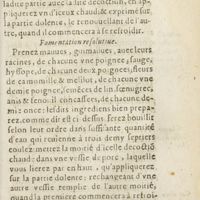 ladite partie auec la dite decoction, en ap-
pliquerez vn d'iceux chaud, & exprimé sur
la partie dolente, le renouuellant de l'au-
tre, quand il commencera à se refroidir.
Fomentation resolutiue.
Prenez mauues, guimauues, auec leurs
racines, de chacune vne poignee, sauge,
hyssope, de chacune deux poignees, fleurs
de camomille & melilot, de chacune vne
demie poignee, semẽces de lin, fœnugrec,
anis & fenoil concassees, de chacune de-
mie once: lesdits ingrediens bien prepa-
rez, comme dit est cy dessus, ferez bouillir
selon leur ordre dans suffisante quantité
d'eau qui reuienne à trois demy septiers
coulez: mettrez la moitié d'icelle decoctiõ
chaude: dans vne vessie de porc, laquelle
vous lierez par en haut, qu'appliquerez
sur la partie dolente: rechangeant d'vne
autre vessie remplie de l'autre moitié,
quand la premiere commencera à refroi-